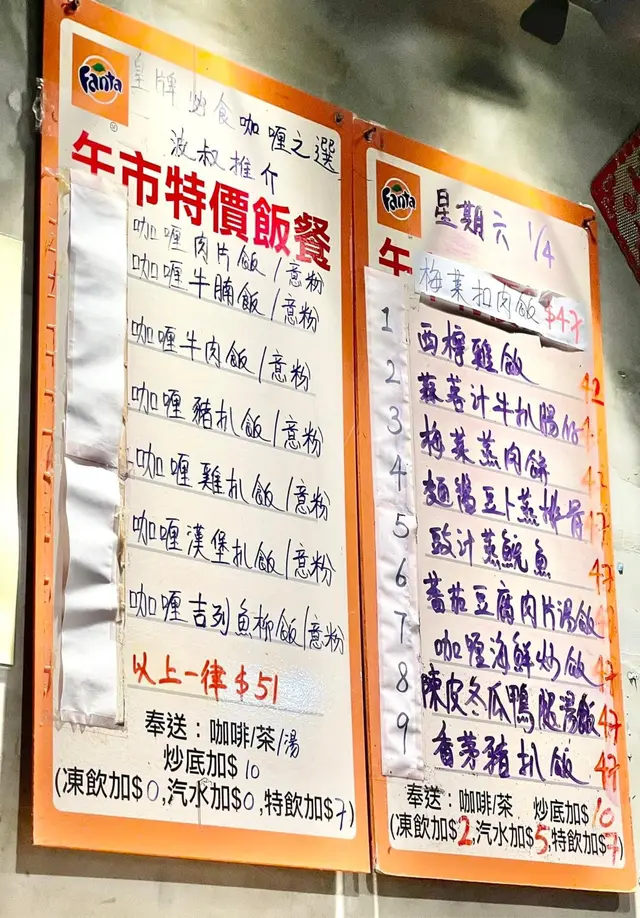 Fanta
皇牌炒食咖喱之選
波叔推介
午市特價飯餐
咖喱肉片飯/意粉
咖喱牛腩飯/意粉
咖喱牛肉飯/意粉
咖喱豬扒飯/意粉
咖喱雞扒飯/意粉
咖喱漢堡扒飯/意粉
咖喱吉列魚柳飯/意粉
以上一律$51
奉送：咖啡/茶/湯
炒底加$10
(凍飲加$0,汽水加$0,特飲加$7)
Fanta
星期六 1/4
午
梅菜扣肉飯 $47
1 西檸雞飯 42
2 蒜蓉汁牛扒腸仔
3 梅菜蒸肉餅 42
4 麵醬豆卜蒸排骨 47
5 豉汁蒸鯇魚 47
6 蕃茄豆腐肉片湯飯
7 咖喱海鮮炒飯 47
8 陳皮冬瓜鴨腿湯飯 47
9 香茅豬扒飯 47
奉送：咖啡/茶 炒底加$10
(凍飲加$2,汽水加$5,特飲加$7)